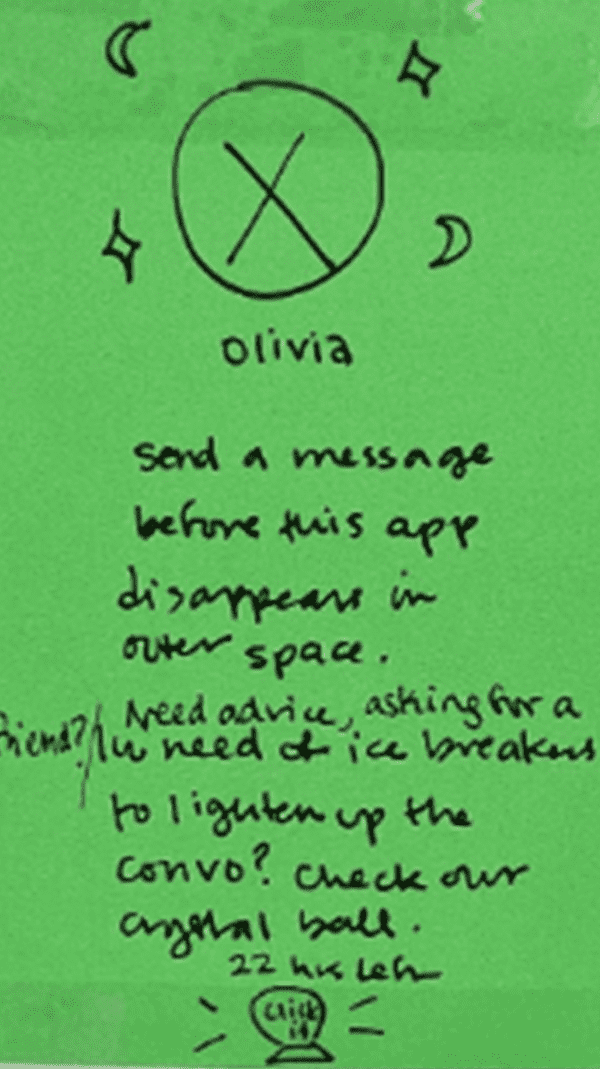 Olivia
Send a message
before this app
disappears in
outer space.
Need advice, asking for a
friend? / In need of ice breakers
to lighten up the
convo? Check our
crystal ball.
22 hrs left
click
it